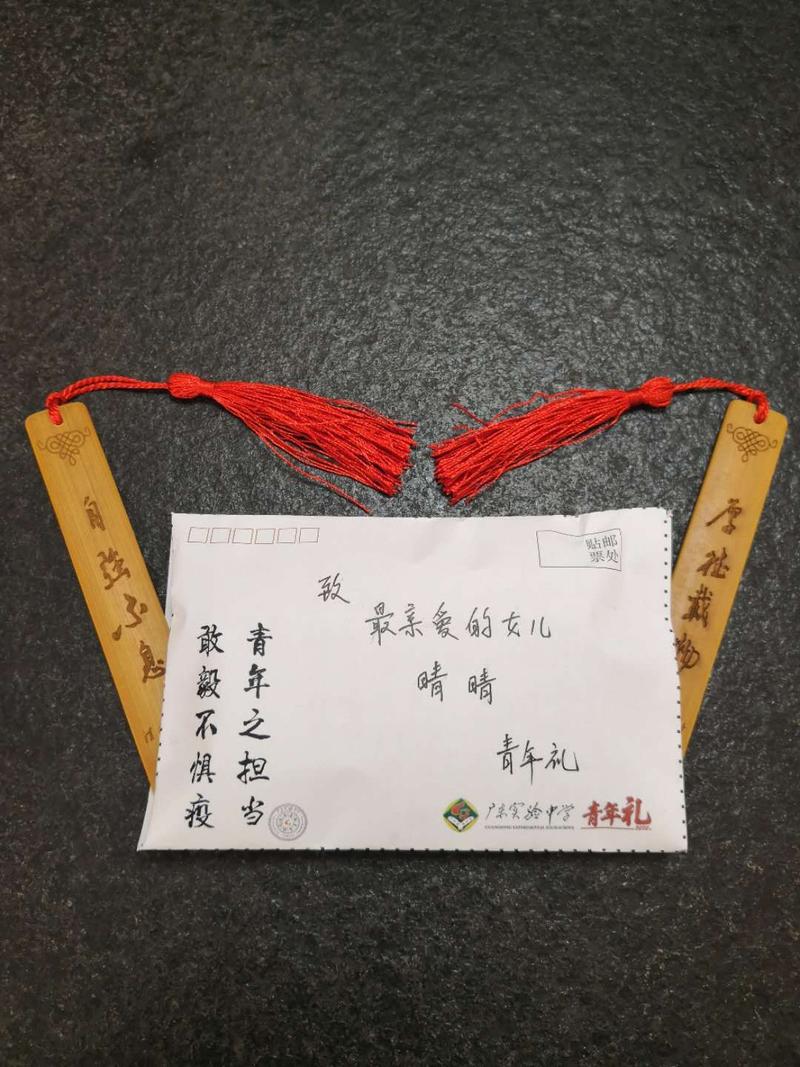 自强不息
厚德载物
贴邮
票处
致
最亲爱的女儿
晴晴
青年礼
青年之担当
敢毅不惧疫
广东实验中学
GUANGDONG EXPERIMENTAL HIGH SCHOOL
青年礼